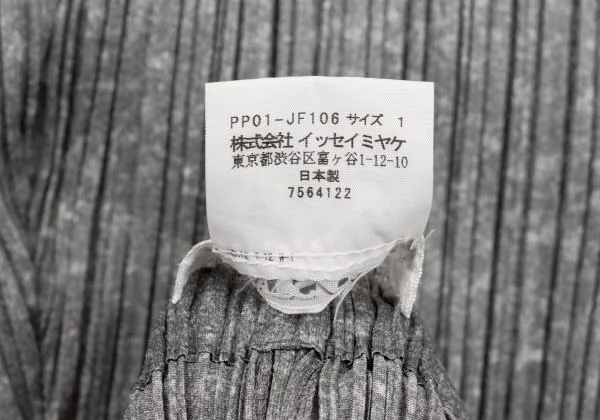 PP01-JF106 サイズ 1
株式会社 イッセイミヤケ
東京都渋谷区富ヶ谷1-12-10
日本製
7564122